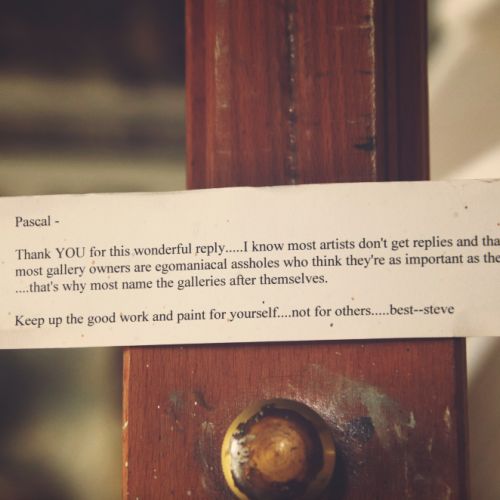 Pascal -
Thank YOU for this wonderful reply.....I know most artists don't get replies and
most gallery owners are egomaniacal assholes who think they're as important as
....that's why most name the galleries after themselves.
Keep up the good work and paint for yourself....not for others.....best--steve